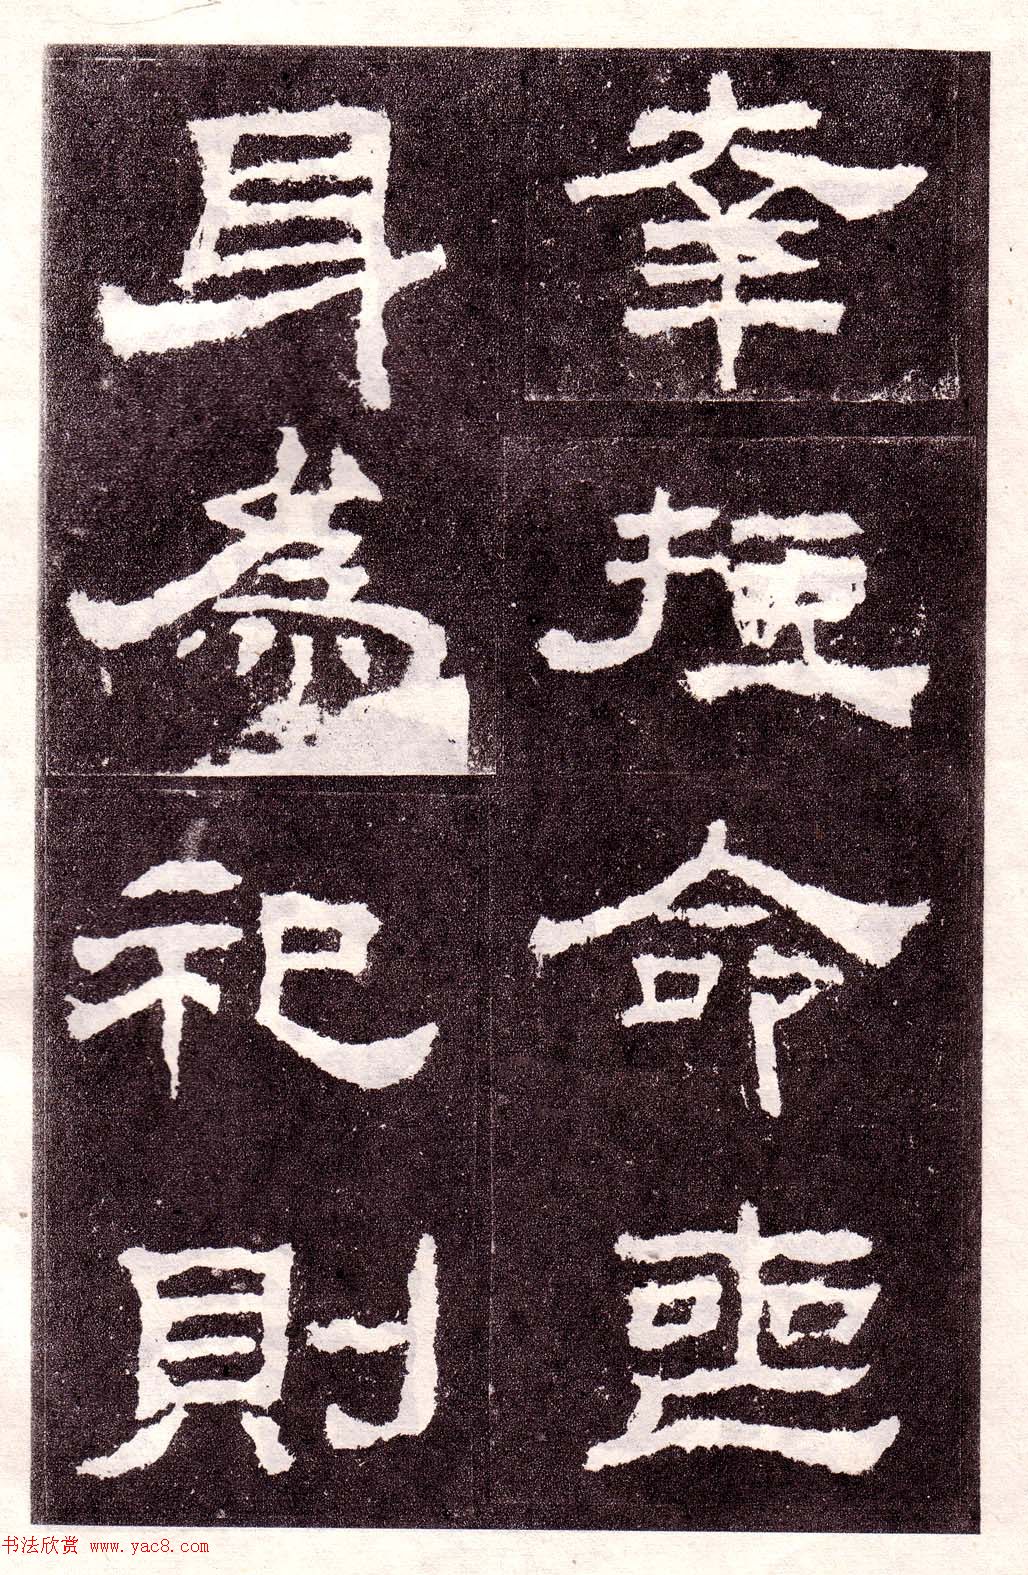 幸短命喪
耳為祀則
书法欣赏 www.yac8.com